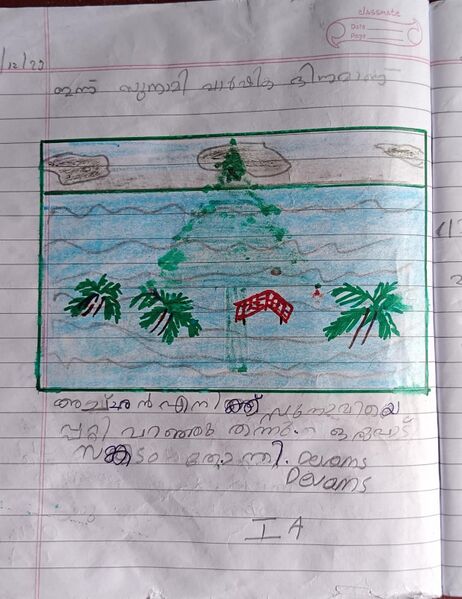 classmate
Date
Page
/12/23
ഇന്ന് സുനാമി വാർഷിക ദിനമാണ്
അച്ഛൻ എനിക്ക് സുനാമിയെ
പ്പറ്റി പറഞ്ഞു തന്നു. ഒരുപാട്
സങ്കടം തോന്നി. Devams
Devams
I A